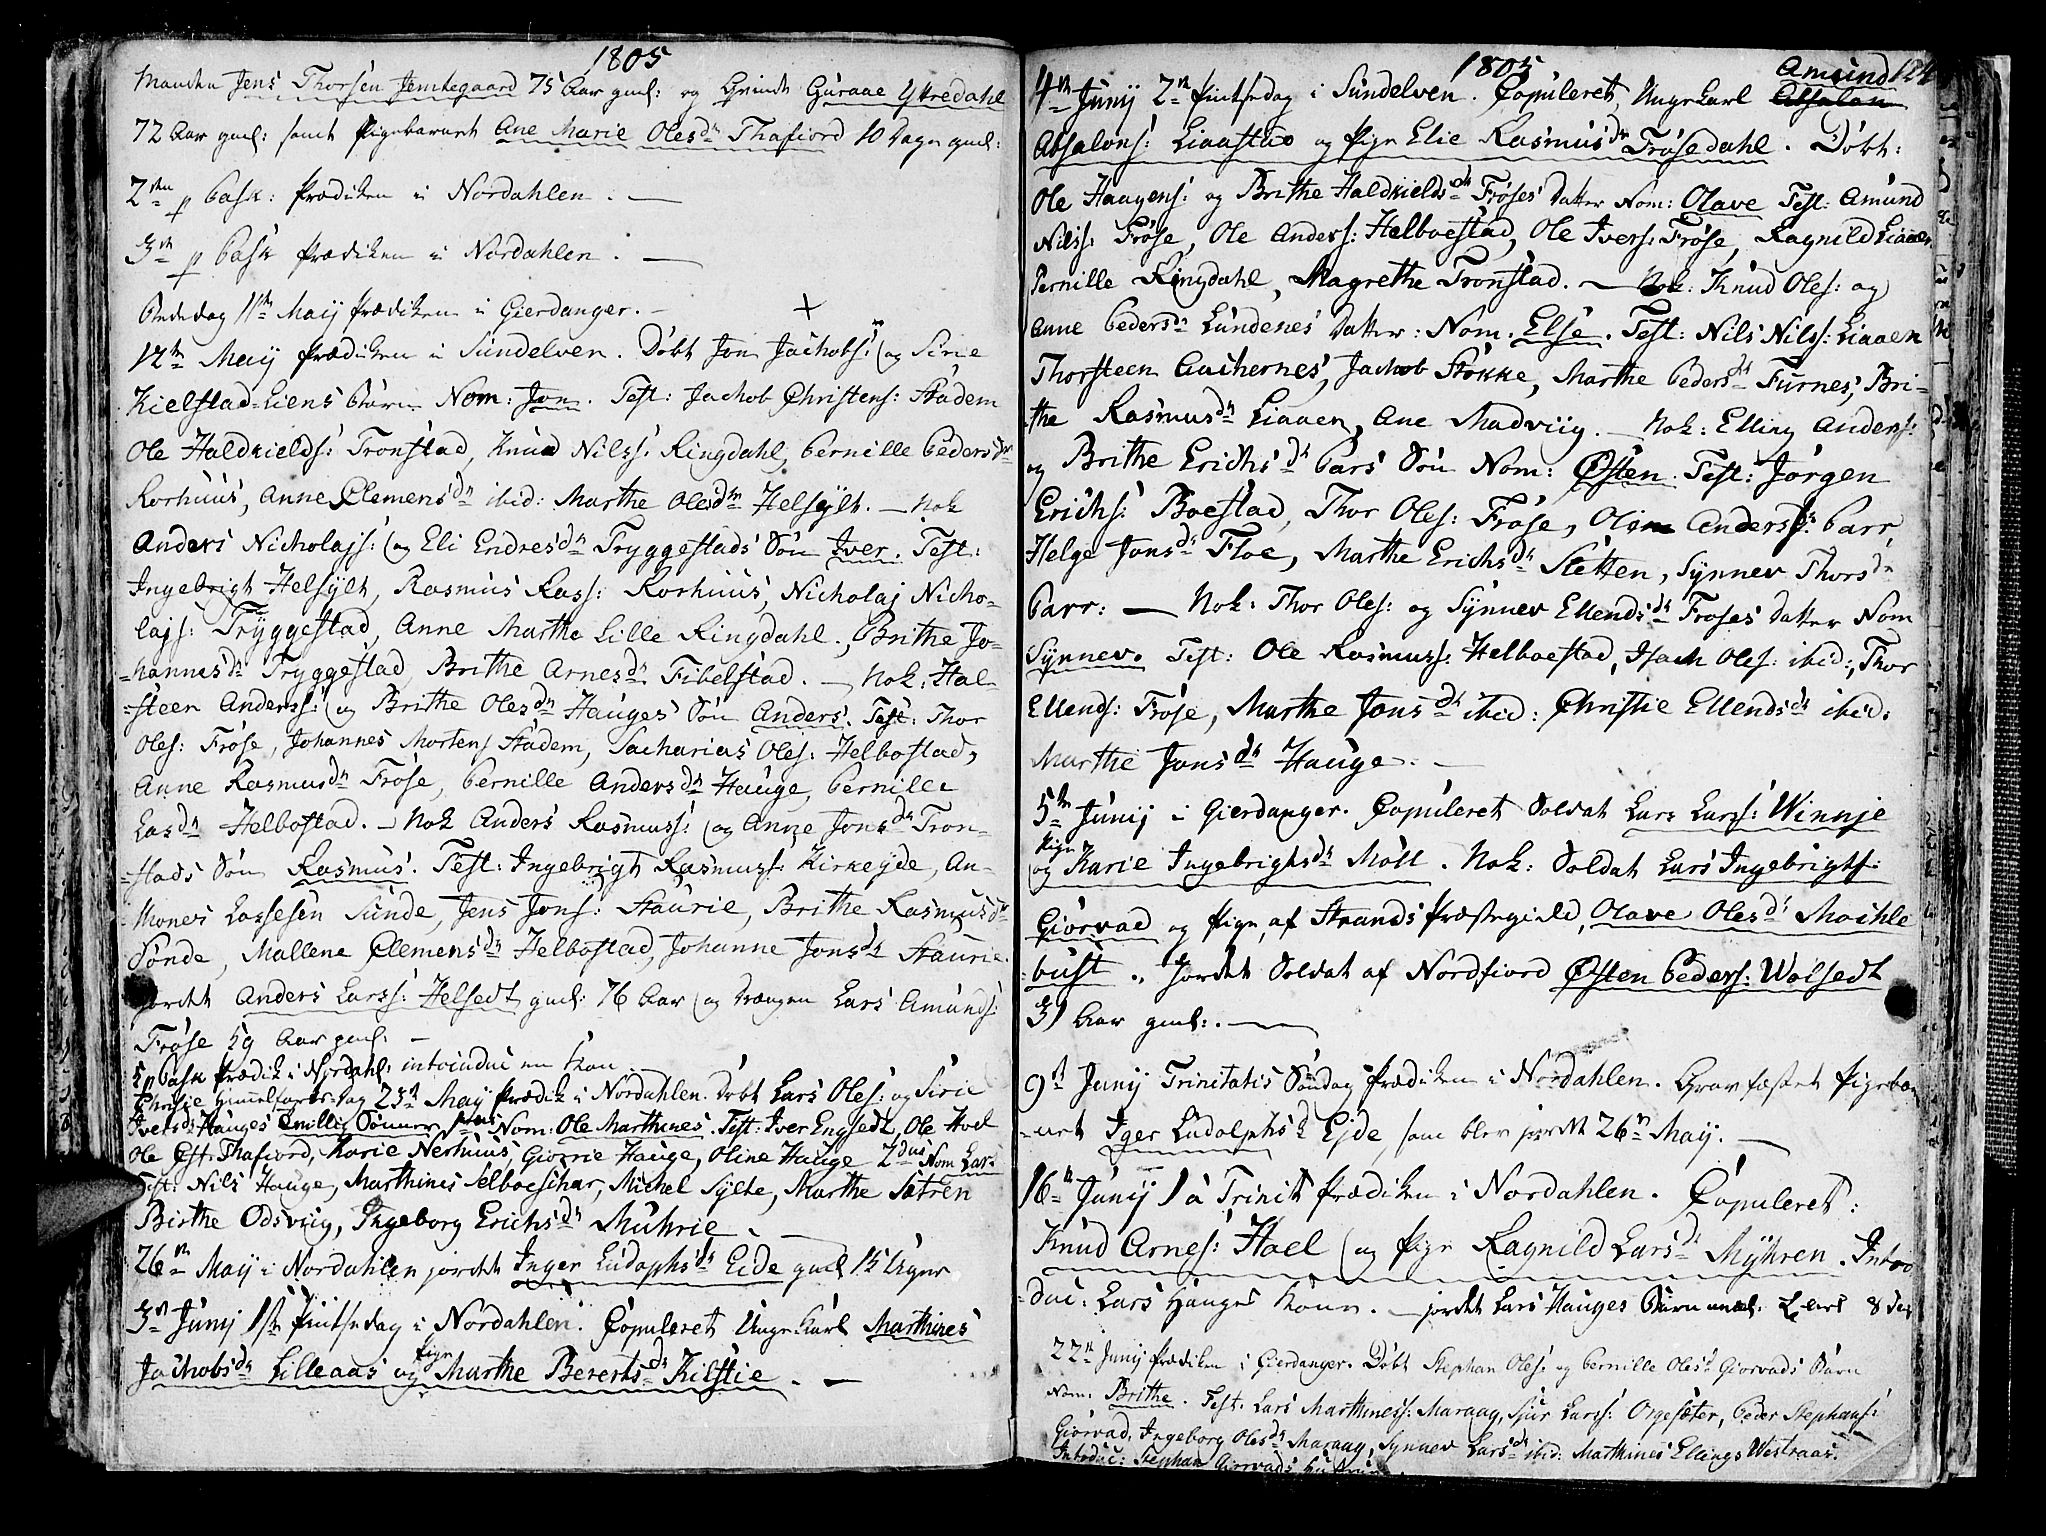 1805
Manden Jens Thorsen Jemtegaard 75 Aar gml: og Qvinde Guraae Yttredahl
72 Aar gml: samt Pigebarnet Ane Marie Olesdr Thafiord 10 Dage gml:
2den p Pask: Prædiken i Nordahlen. —
3die p Pask Prædiken i Nordahlen. —
Bededag 11te May Prædiken i Gierdanger. —
12te May Prædiken i Sundelven. Døbt Jon Jachobs: og Sirie
Kielstad-Liens Barn Nom: Jon. Test: Jachob Christens: Stadem
Ole Haldkields: Tronstad, Knud Nilss: Ringdahl, Pernille Pedersdr
Korhuus, Anne Clemensdr ibid: Marthe Olesdr Helsylt. — Nok
Anders Nicholajs: og Eli Endresdr Tryggestads Søn Iver. Test:
Ingebrigt Helsylt, Rasmus Rass: Korhuus, Nicholaj Nicho-
lajs: Tryggestad, Anne Marthe Lille Ringdahl, Brithe Jo-
-hannesdr Tryggestad, Brithe Arnesdr Fibelstad. — Nok: Hal-
-steen Anderss: og Brithe Olesdr Hauges Søn Anders. Test: Thor
Oles: Frøse, Johannes Mortens Stadem, Sacharias Oles: Helbostad,
Anne Rasmusdr Frøse, Pernille Andersdr Hauge, Pernille
Lasdr Helbostad. — Nok Anders Rasmuss: og Anne Jonsdr Tron-
-stads Søn Rasmus. Test: Ingebrigt Rasmuss: Kirkeyde, An-
Lassesen Sunde, Jens Jons: Staurie, Brithe Rasmusdr
Sønde, Mallene Clemensdr Helbostad, Johanne Jonsdr Staurie.
Jordet Anders Larss: Helsedt gml: 76 Aar og Drengen Lars Amunds:
Frøse 59 Aar gml: —
5 p Pask Prædik i Nordahl: introduc en Kone
Christi Himmelfartsdag 23de May Prædik i Nordahlen. Døbt Lars Oles: og Sirie
Iversdr Hauges Tvilling Sønner Nom: Ole Marthines. Test: Iver Engsedt, Ole Hoel
Ole Thafiord, Karie Nerhuus, Giørrie Hauge, Oline Hauge 2dus Nom Lars
Test: Nils Hauge, Marthines Selboeschar, Michel Sylte, Marthe Sætren
Birthe Odsviig, Ingeborg Erichsdr Muhrie —
26de May i Nordahlen jordet Inger Ludophsdr Eide gml 15 Uger
3die Junij 1ste Pintsedag i Nordahlen. Copuleret Ungekarl Marthines
Jachobsdr Lilleaas og Pige Marthe Berertsdr Kilstie. —
1805
124
4de Junij 2den Pintsedag i Sundelven. Copuleret, Ungekarl Absalon Amund
Absalons: Liaastuo og Pige Elie Rasmusdr Frøsedahl. Døbt:
Ole Haagens: og Brithe Haldkieldsdr Frøses Datter Nom: Olave Test: Amund
Nilss: Frøse, Ole Anders: Helboestad, Ole Ivers: Frøse, Ragnild Liaaen
Pernille Ringdahl, Magrethe Tronstad. — Nok: Knud Oles: og
Anne Pedersdr Lundenes Datter: Nom. Else. Test: Nils Nilss: Liaaen
Thorsteen Aachernes, Jachob Støkke, Marthe Pedersdr Furnes, Bri-
the Rasmusdr Liaaen, Ane Madviig. — Nok: Elling Anders:
og Brithe Erichsdr Parrs Søn Nom: Østen. Test: Jørgen
Erichs: Boestad, Thor Oles: Frøse, Andersdr Parr,
Helge Jonsdr Floe, Marthe Erichsdr Sletten, Synnev Thorsdr
Parr: — Nok: Thor Oles: og Synnev Ellendsdr Frøses Datter Nom
Synnev. Test: Ole Rasmuss: Helboestad, Isach Oles: ibid:, Thor
Ellends: Frøse, Marthe Jonsdr ibid: Christie Ellendsdr ibid:
Marthe Jonsdr Hauge. —
5te Junij i Gierdanger. Copuleret Soldat Lars Larss: Winnje
og Pige Karie Ingebrigtsdr Moll. Nok: Soldat Lars Ingebrigts:
Giørvad og Pige af Strands Præstegield, Olave Olesdr Machle
bust. Jordet Soldat af Nordfiord Østen Peders: Wolsedt
31 Aar gml:. —
9de Junij Trinitatis Søndag Prædiken i Nordahlen. Gravfæstet Pigebar-
-net Iger Ludolphsdr Ejde, som blev jordet 26de May. —
16de Junij 1 à Trinit Prædiken i Nordahlen. Copuleret:
Knud Arnes: Hoel og Pige Ragnild Larsdr Myhren. Intro
-duc: Lars Hauges Kone. — jordet Lars Hauges Barn Lars 8
22de Junij Prædiken i Gierdanger. Døbt Stephan Oles: og Pernille Olesdr Giørvads Barn
Nom: Brithe. Test. Lars Marthiness: Maraag, Sjur Larss: Orgesæter, Peder Stephans:
Giørvad, Ingeborg Olesdr Maraag, Synnev Larsdr ibid: Marthines Ellings Westraas.
Introduc: Stephan Giørvads